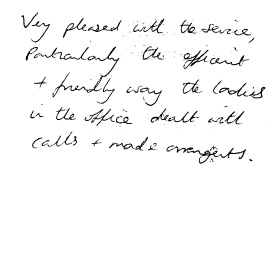 Very pleased with the service,
Particularly the efficient
+ friendly way the ladies
in the office dealt with
calls + made arrangements.